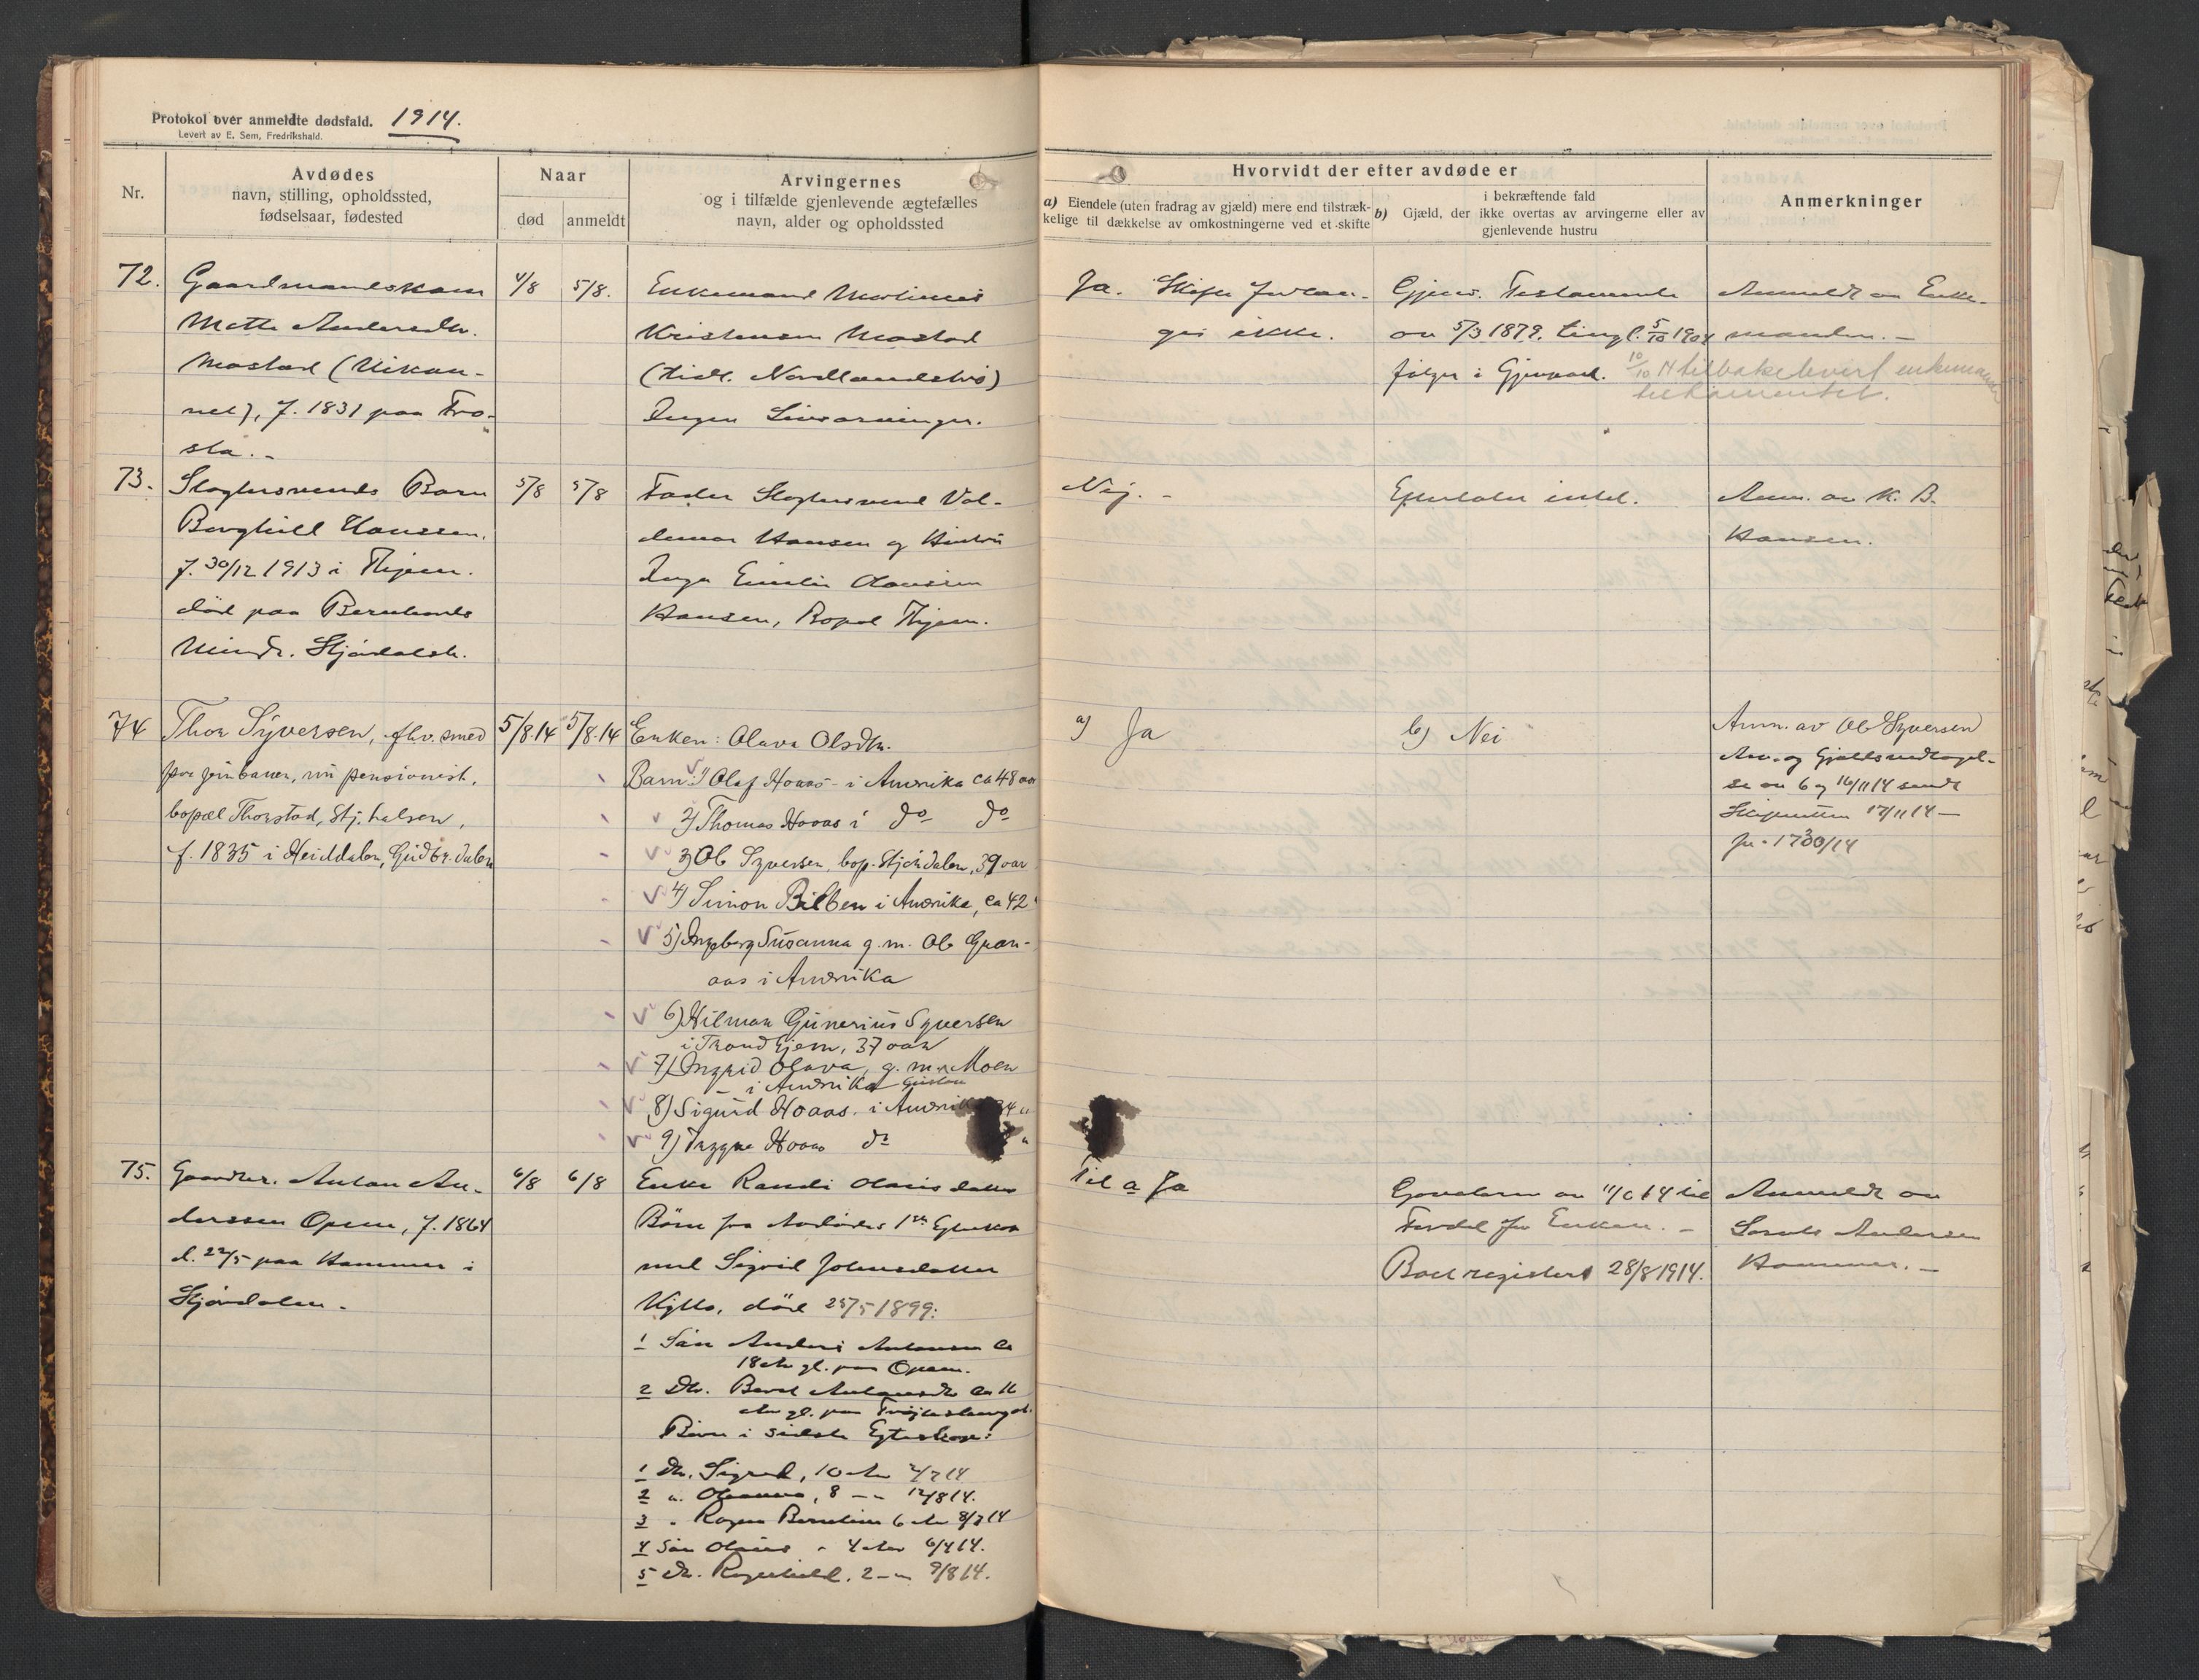 Protokol over anmeldte dødsfald. 1914.
Levert av E. Sem, Fredrikshald.
Nr.
Avdødes
navn, stilling, opholdssted,
fødselsaar, fødested
Naar
død
anmeldt
Arvingernes
og i tilfælde gjenlevende ægtefælles
navn, alder og opholdssted
Hvorvidt der efter avdøde er
a) Eiendele (uten fradrag av gjæld) mere end tilstræk-
kelige til dækkelse av omkostningerne ved et skifte
i bekræftende fald
b) Gjæld, der ikke overtas av arvingerne eller av
gjenlevende hustru
Anmerkninger
72.
Gaardmandskone
Mette Andersdtr.
Mostad
f. 1831 paa Fro-
sta. -
4/8
5/8.
Enkemand
Kristensen Mostad
(tidl.
Ingen Livsarvinger.
Ja. Skifte forlan-
ges ikke.
Gjens. Testamente
av 5/3 1879, tingl. 5/10 1904
følger i Gjenpart.
10/10 14 tilbakelevert enkemanden
testamentet.
Anmeldt av Enke-
manden. -
73.
Slagtersvends Barn
Borghild Hanssen,
f. 30/12 1913 i Thjem.
død paa
Stjørdalsh.
5/8
5/8
Fader Slagtersvend Val-
demar Hansen og Hustru
Inga Emilie
Hansen, Bopæl Thjem.
Nej. -
Efterlater intet.
Anm. av K. B.
Hansen.
74
Thor Syversen, fhv. smed
for jernbanen, nu pensionist,
bopæl Thorstad, Stj. halsen,
f. 1835 i Heiddalen, Gudbr. dalen
5/8.14
5/8.14
Enken: Olava Olsdtr.
Barn: 1) Olaf Hoaas - i Amerika ca 48 aar
2) Thomas Hoaas i do do
3) Ole Syversen, bop. Stjørdalen, 39 aar
4) Simon Bilben i Amerika, ca 42 "
5) Ingeborg Susanna g. m. Ole Gran-
aas i Amerika
6) Hilmar Gunerius Syversen
i Trondhjem, 37 aar
7) Ingrid Olava, g. m. Moen
i Amerika
8) Sigurd Hoaas. i Amerika 34 "
9) Trygve Hoaas do "
a) Ja
b) Nei
Anm. av Ole Syversen
Arv- og Gjældsvedtagel-
se av 6 og 16/11 14 sendt
Skifteretten 17/11 14 -
75.
Gaardbr. Anton An-
derssen Opem, f. 1864
d. 22/5 paa Hammer i
Stjørdalen.
6/8
6/8
Enke Randi Olausdatter
Børn fra Avdødes 1ste Egteskap
med Sigrid Johnsdatter
død 25/5 1899:
1 Søn Anders Antonsen ca
18 aar gl. paa Opem.
2 Dtr. Beret Antonsdtr ca 16
aar gl. paa
Børn i sidste Egteskap:
1 Dtr. Sigrid, 10 aar 2/7 14
2 " 8 - " 12/8 14.
3 " 6 aar 8/3 14
4 Søn Olaus " 4 aar 6/4 14.
5 Dtr. Ragnhild. 2 - " 9/8 14.
Til a Ja
til
Fordel for Enken. -
Boet registert 28/8 1914.
Anmeldt av
Andersen
Hammer. -